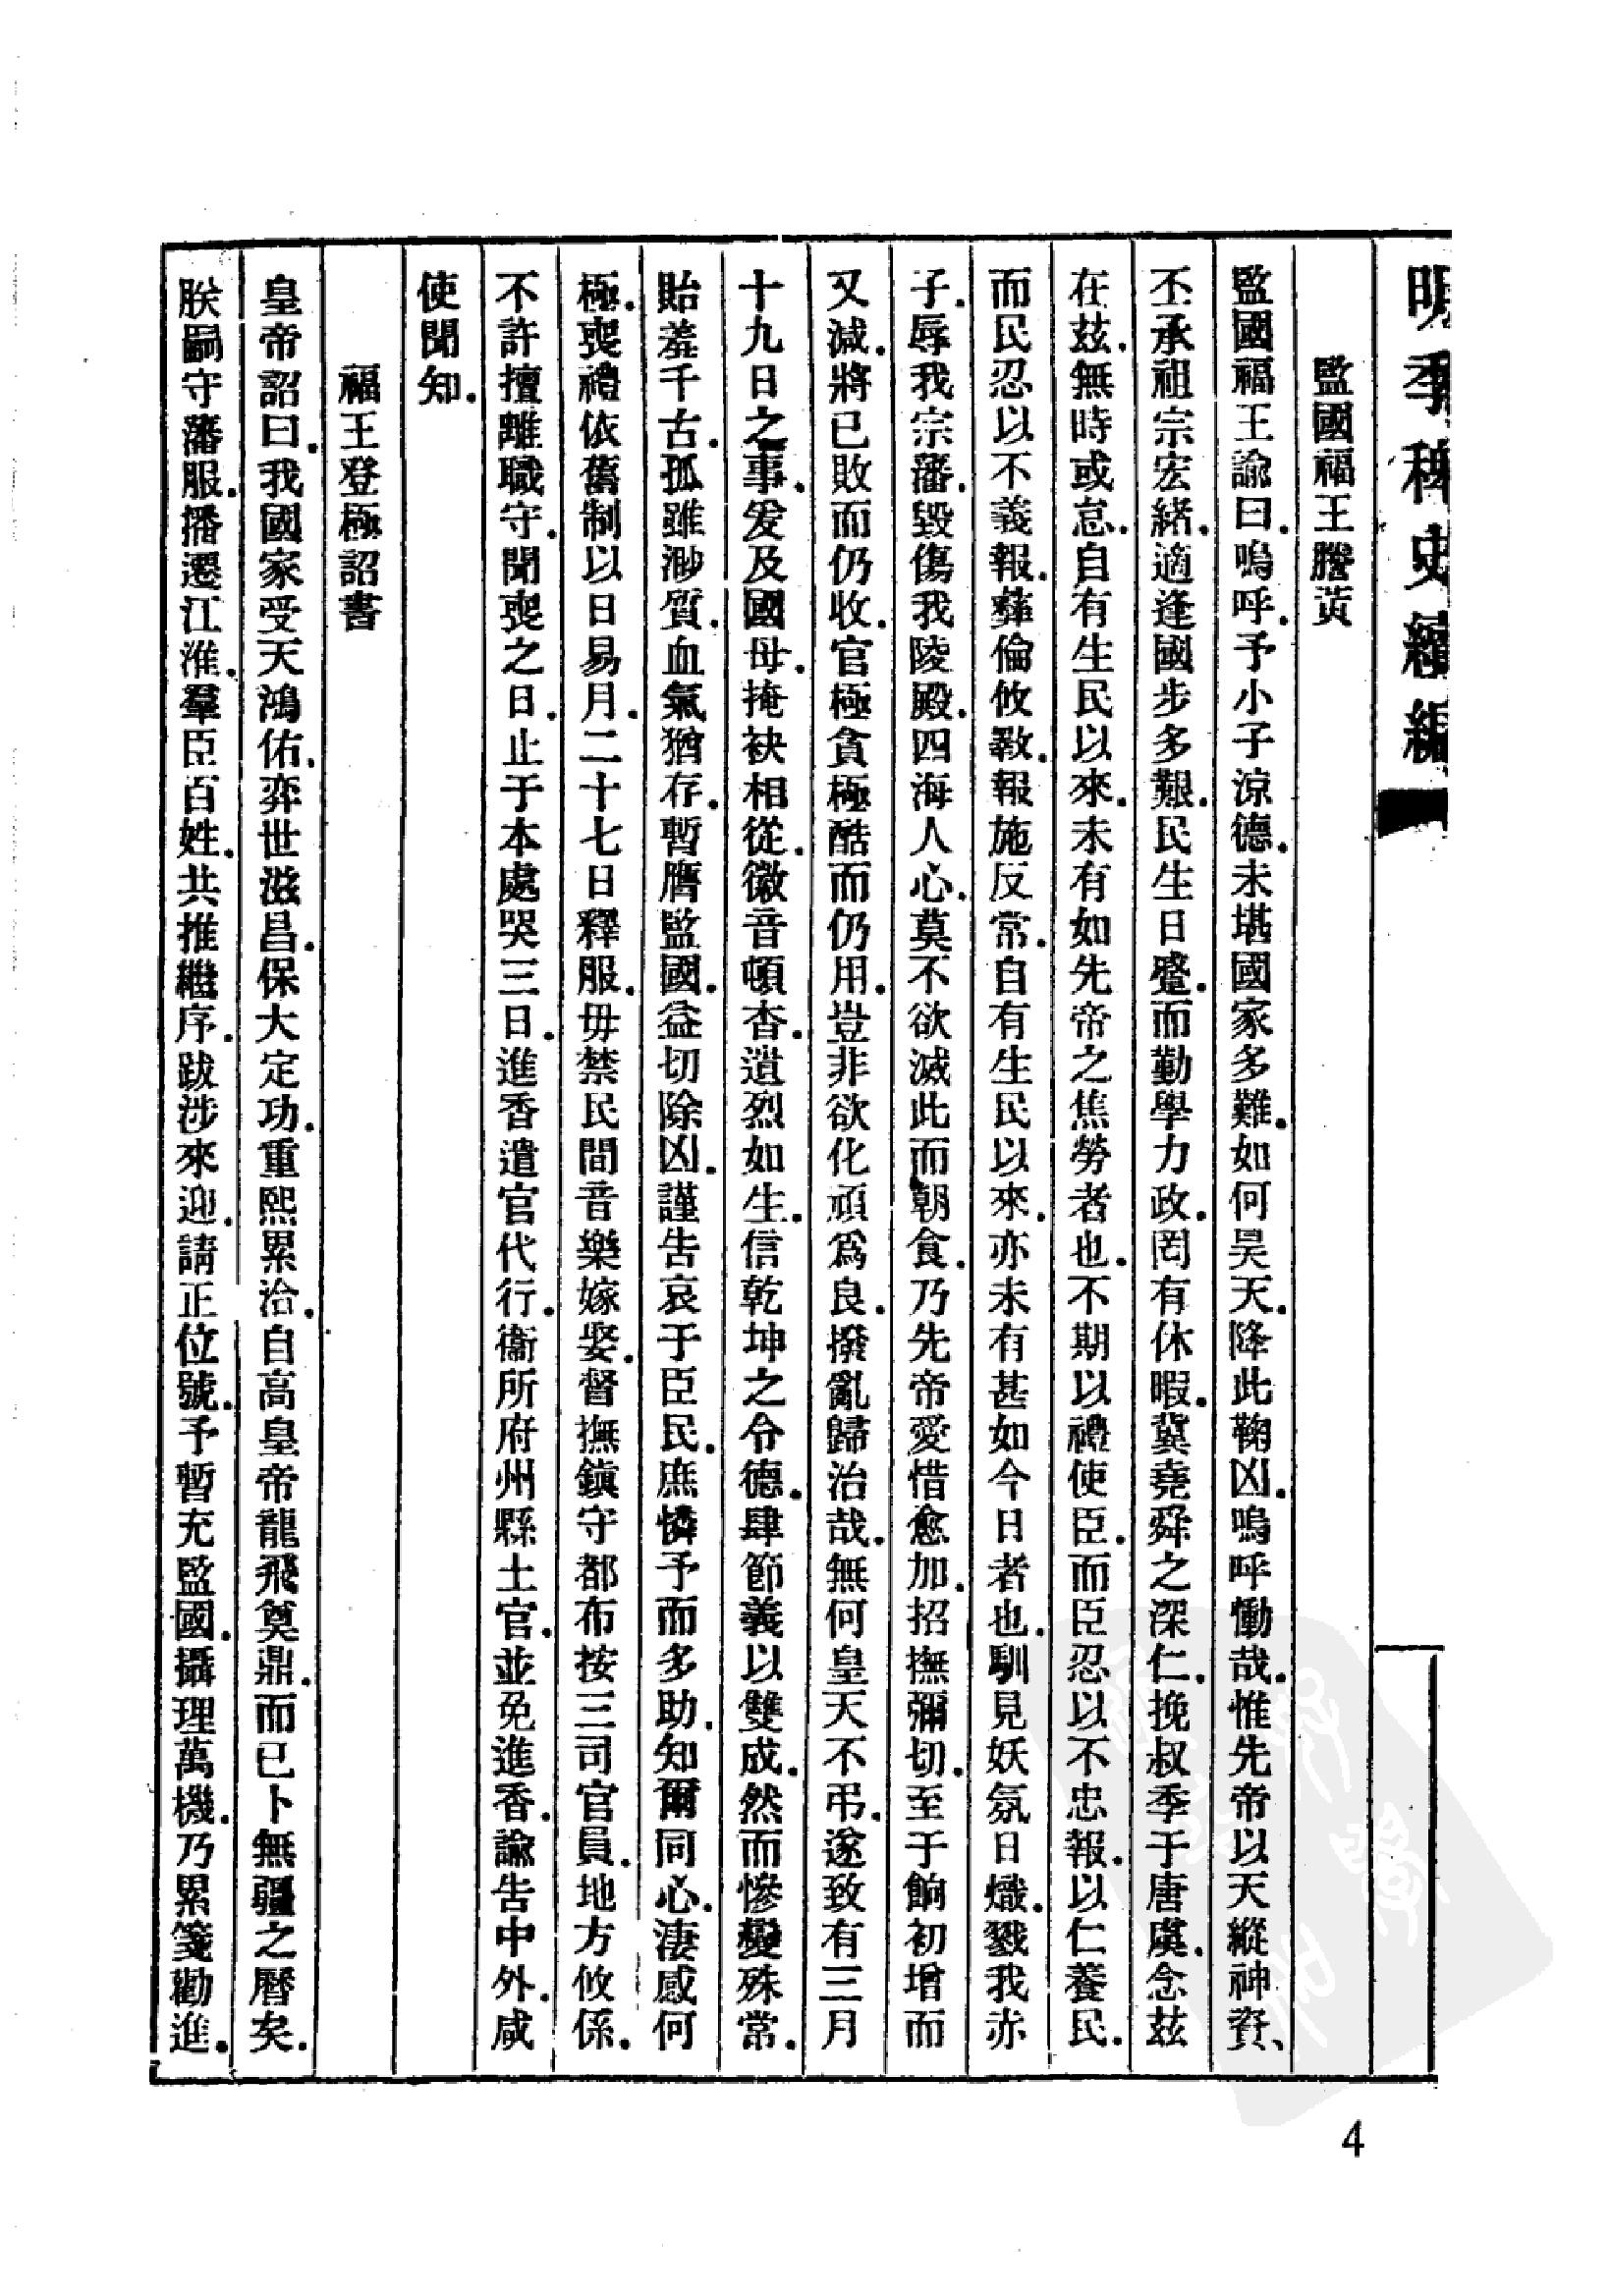 明季稗史續編
監國福王謄黃
監國福王諭曰.嗚呼.予小子涼德.未堪國家多難.如何昊天.降此鞠凶.嗚呼慟哉.惟先帝以天縱神資、
丕承祖宗宏緒.適逢國步多艱.民生日蹙.而勤學力政.罔有休暇.冀堯舜之深仁.挽叔季于唐虞.念茲
在茲.無時或怠.自有生民以來.未有如先帝之焦勞者也.不期以禮使臣.而臣忍以不忠報.以仁養民.
而民忍以不義報.彝倫攸斁.報施反常.自有生民以來.亦未有甚如今日者也.馴見妖氛日熾.戮我赤
子.辱我宗藩.毀傷我陵殿.四海人心.莫不欲滅此而朝食.乃先帝愛惜愈加.招撫彌切.至于餉初增而
又減.將已敗而仍收.官極貪極酷而仍用.豈非欲化頑爲良.撥亂歸治哉.無何皇天不弔.遂致有三月
十九日之事.爰及國母.掩袂相從.徽音頓杳.遺烈如生.信乾坤之令德.肆節義以雙成.然而慘變殊常.
貽羞千古.孤雖渺質.血氣猶存.暫膺監國.益切除凶.謹告哀于臣民.庶憐予而多助.知爾同心.淒感何
極.喪禮依舊制以日易月.二十七日釋服.毋禁民間音樂嫁娶.督撫鎮守都布按三司官員.地方攸係.
不許擅離職守.聞喪之日.止于本處哭三日.進香遣官代行.衞所府州縣土官.並免進香.諭告中外.咸
使聞知.
福王登極詔書
皇帝詔曰.我國家受天鴻佑.弈世滋昌.保大定功.重熙累洽.自高皇帝龍飛奠鼎.而已卜無疆之曆矣.
朕嗣守藩服.播遷江淮.羣臣百姓.共推繼序.跋涉來迎.請正位號.予暫充監國.攝理萬機.乃累箋勸進.
4